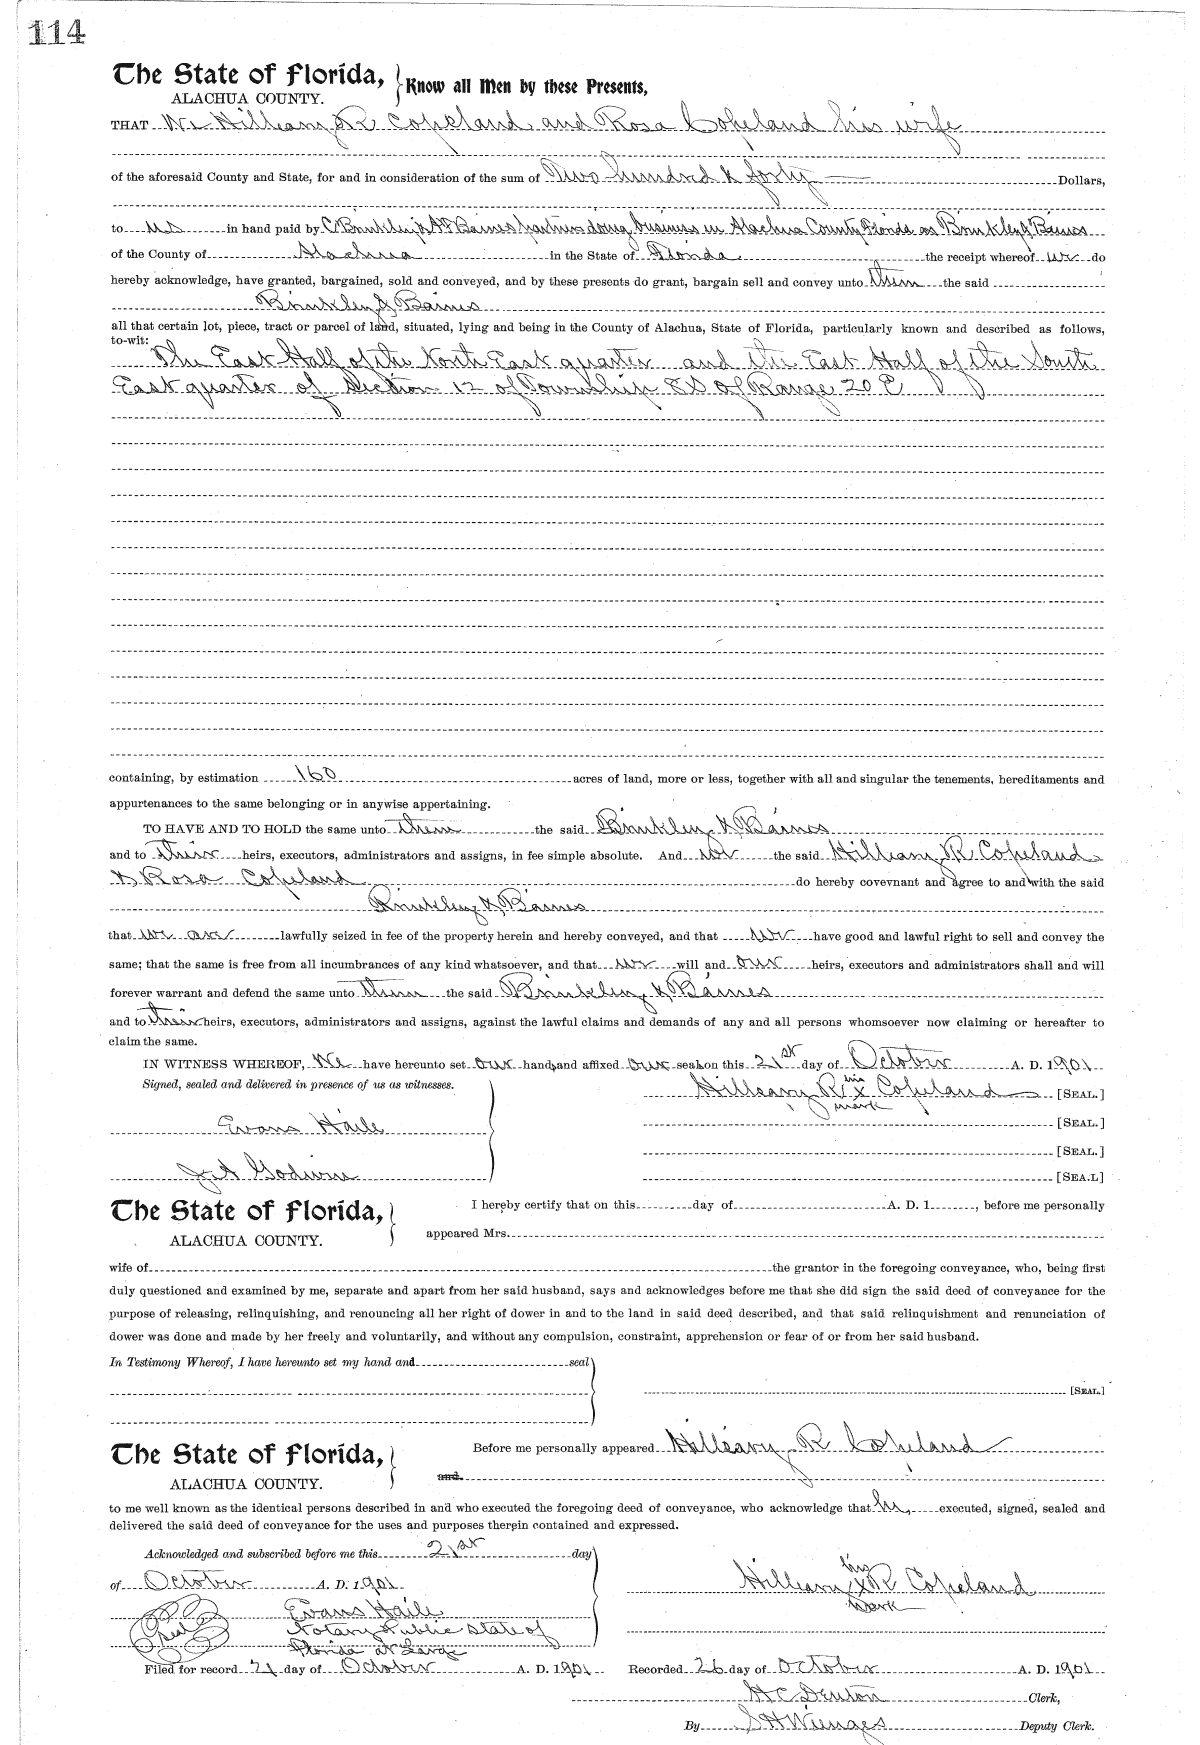 114
The State of Florida,
ALACHUA COUNTY.
Know all Men by these Presents,
THAT We Hilleary R Copeland and Rosa Copeland his wife
of the aforesaid County and State, for and in consideration of the sum of Two hundred & forty Dollars,
to us in hand paid by C Brinkley & A Baines partners doing business in Alachua County Florida as Brinkley & Baines
of the County of Alachua in the State of Florida the receipt whereof we do
hereby acknowledge, have granted, bargained, sold and conveyed, and by these presents do grant, bargain sell and convey unto them the said
Brinkley & Baines
all that certain lot, piece, tract or parcel of land, situated, lying and being in the County of Alachua, State of Florida, particularly known and described as follows,
to-wit:
The East Half of the North East quarter and the East Half of the South
East quarter of Section 12 of Township 8 S of Range 20 E
containing, by estimation 160 acres of land, more or less, together with all and singular the tenements, hereditaments and
appurtenances to the same belonging or in anywise appertaining.
TO HAVE AND TO HOLD the same unto them the said Brinkley & Baines
and to their heirs, executors, administrators and assigns, in fee simple absolute. And we the said Hilleary R Copeland
& Rosa Copeland do hereby covevnant and agree to and with the said
Brinkley & Baines
that we are lawfully seized in fee of the property herein and hereby conveyed, and that we have good and lawful right to sell and convey the
same; that the same is free from all incumbrances of any kind whatsoever, and that we will and our heirs, executors and administrators shall and will
forever warrant and defend the same unto them the said Brinkley & Baines
and to their heirs, executors, administrators and assigns, against the lawful claims and demands of any and all persons whomsoever now claiming or hereafter to
claim the same.
IN WITNESS WHEREOF, We have hereunto set our hands and affixed our seals on this 21st day of October A. D. 1901
Signed, sealed and delivered in presence of us as witnesses.
Hilleary R his x mark Copeland [SEAL.]
Evans Haile [SEAL.]
[SEAL.]
J A Godwin [SEA.L]
The State of Florida,
ALACHUA COUNTY.
I hereby certify that on this day of A. D. 1 , before me personally
appeared Mrs.
wife of the grantor in the foregoing conveyance, who, being first
duly questioned and examined by me, separate and apart from her said husband, says and acknowledges before me that she did sign the said deed of conveyance for the
purpose of releasing, relinquishing, and renouncing all her right of dower in and to the land in said deed described, and that said relinquishment and renunciation of
dower was done and made by her freely and voluntarily, and without any compulsion, constraint, apprehension or fear of or from her said husband.
In Testimony Whereof, I have hereunto set my hand and seal
[SEAL.]
The State of Florida,
ALACHUA COUNTY.
Before me personally appeared Hilleary R Copeland
and
to me well known as the identical persons described in and who executed the foregoing deed of conveyance, who acknowledge that he executed, signed, sealed and
delivered the said deed of conveyance for the uses and purposes therein contained and expressed.
Acknowledged and subscribed before me this 21st day
of October A. D. 1901
Hilleary his x mark R Copeland
Evans Haile
Seal
Notary Public State of
Florida at Large
Filed for record 21 day of October A. D. 1901 Recorded 26 day of October A. D. 1901
H C Denton Clerk,
By S H Wienges Deputy Clerk.